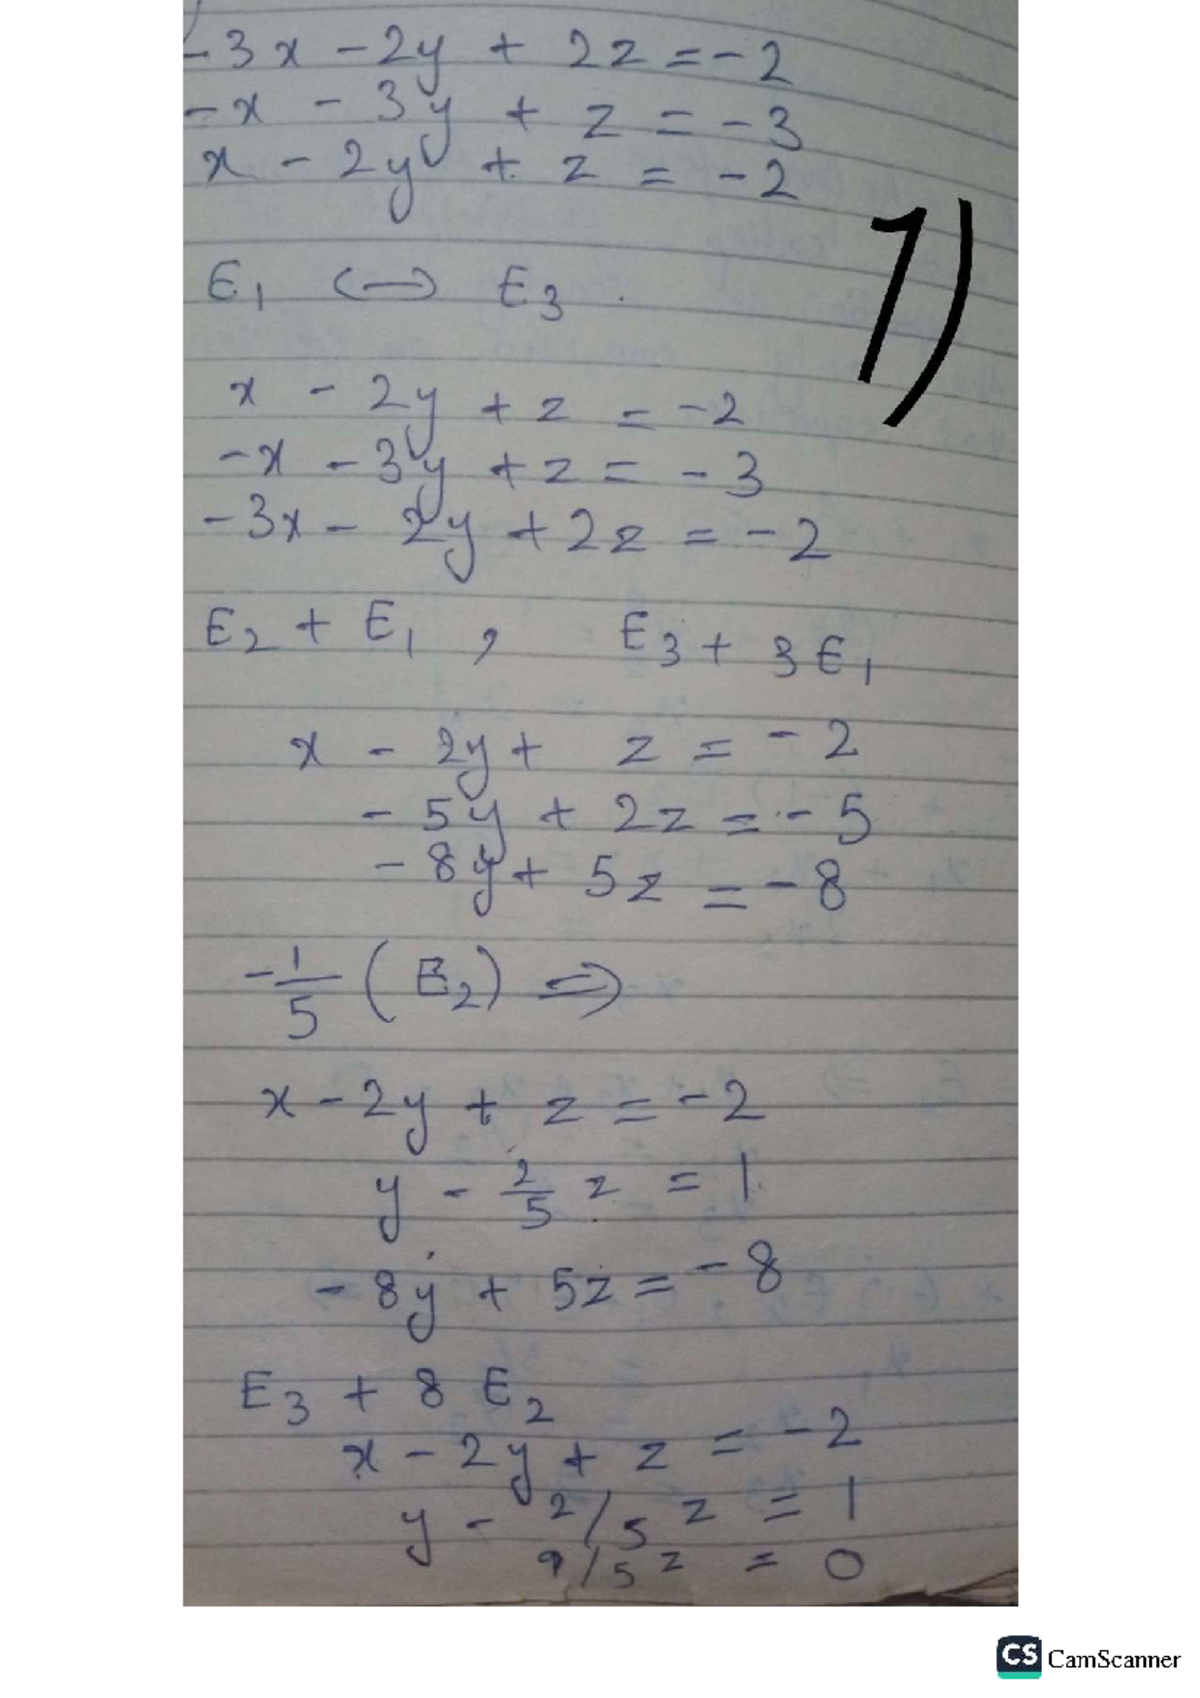 -3x - 2y + 2z = -2
-x - 3y + z = -3
x - 2y + z = -2
1)
E₁ ⟷ E₃
x - 2y + z = -2
-x - 3y + z = -3
-3x - 2y + 2z = -2
E₂ + E₁ , E₃ + 3E₁
x - 2y + z = -2
- 5y + 2z = -5
- 8y + 5z = -8
-1/5 (E₂) ⇒
x - 2y + z = -2
y - 2/5 z = 1
- 8y + 5z = -8
E₃ + 8 E₂
x - 2y + z = -2
y - 2/5 z = 1
9/5 z = 0
CS CamScanner